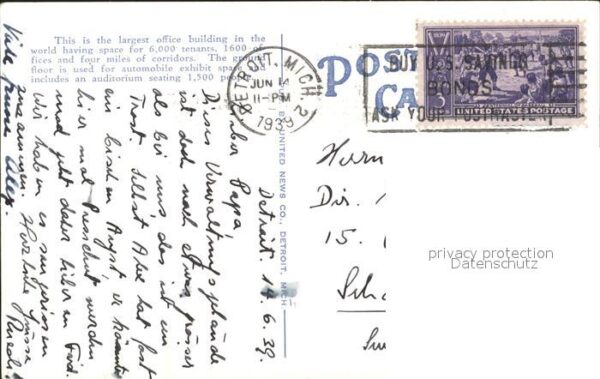 This is the largest office building in the
world having space for 6,000 tenants, 1600 of
fices and four miles of corridors. The ground
floor is used for automobile exhibit space and
includes an auditorium seating 1,500 people.
POST
CA
DETROIT, MICH. 2
JUN 14
11-PM
1939
BUY U.S. SAVINGS
BONDS
ASK YOUR POSTMASTER
UNITED STATES POSTAGE
3
BY UNITED NEWS CO., DETROIT, MICH
Detroit. 14.6.39.
Lieber Papa
Dieses Verwaltungsgebäude
ist doch noch etwas grösser
als bei uns das ist ein
Trost. Selbst Alex hat fast
ein bischen Angst, er könnte
hier mal Präsident werden
und geht daher lieber zu Ford.
Wir haben es
zusammen. Herzliche Grüsse
Viele
Herrn
Dir.
15.
Scha
privacy protection
Datenschutz